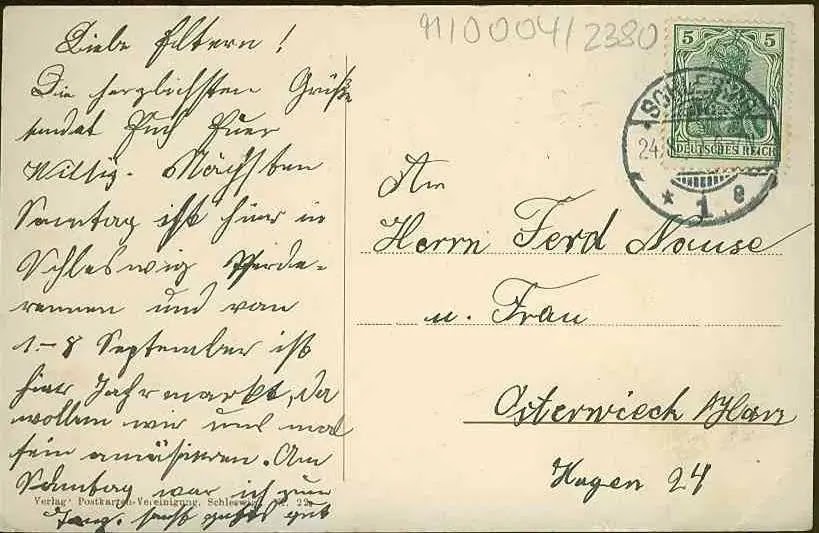 Liebe Eltern!
Die herzlichsten Grüße
sendet Euch Euer
Willy. Nächsten
Sonntag ist hier in
Schleswig Pferde-
rennen und von
1-8 September ist
hier Jahrmarkt, da
wollen wir uns mal
fein amüsieren. Am
Sonntag war ich zum
Tanz. sonst gehts gut
Verlag Postkarten-Vereinigung, Schleswig
91/0004/2380
5 5
DEUTSCHES REICH
SCHLESWIG
24
* 1 e
An
Herrn Ferd Nause
u. Frau
Osterwieck /Harz
Hagen 24